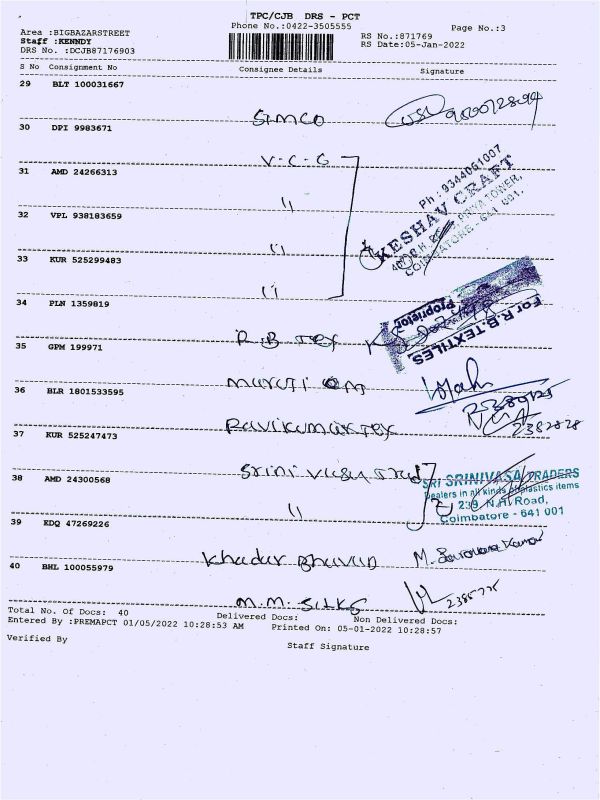 TPC/CJB DRS - PCT
Phone No.:0422-3505555
Page No.:3
Area :BIGBAZARSTREET
Staff :KENNDY
DRS No. :DCJB87176903
RS No.:871769
RS Date:05-Jan-2022
S No Consignment No Consignee Details Signature
29 BLT 100031667
SIMCO
30 DPI 9983671
V-C-G
31 AMD 24266313
Ph : 9344061007
KESHAV CRAFT
COIMBATORE - 641 001.
32 VPL 938183659
33 KUR 525299483
34 PLN 1359819
R.B Tex
Proprietor
For R.B.TEXTILES,
35 GPM 199971
maruti om
36 BLR 1801533595
Ravikumar Tex
2382828
37 KUR 525247473
SRI SRINIVASA TRADERS
Dealers in all kinds of plastics items
239, N.H. Road,
Coimbatore - 641 001
38 AMD 24300568
39 EDQ 47269226
Khadar Bhavan
40 BHL 100055979
M.M. SILKS
Total No. Of Docs: 40 Delivered Docs: Non Delivered Docs:
Entered By :PREMAPCT 01/05/2022 10:28:53 AM Printed On: 05-01-2022 10:28:57
Verified By
Staff Signature